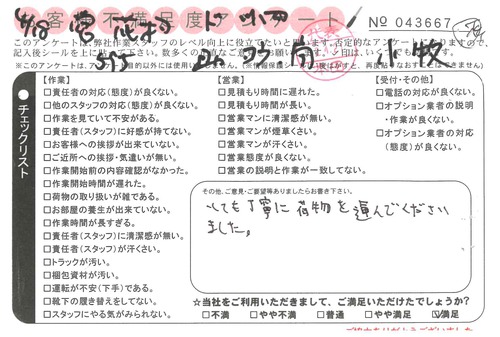 お客様不満足度アンケート
No 043667
このアンケートは、弊社作業スタッフのレベル向上に役立てたいと
【作業】
□責任者の対応(態度)が良くない。
□他のスタッフの対応(態度)が良くない。
□作業を見ていて不安がある。
□責任者(スタッフ)に好感が持てない。
□お客様への挨拶が出来ていない。
□ご近所への挨拶・気遣いが無い。
□作業開始前の内容確認がなかった。
□作業開始時間が遅れた。
□荷物の取り扱いが雑である。
□お部屋の養生が出来ていない。
□作業時間が長すぎる。
□責任者(スタッフ)に清潔感が無い。
□責任者(スタッフ)が汗くさい。
□トラックが汚い。
□梱包資材が汚い。
□運転が不安(下手)である。
□靴下の履き替えをしてない。
□スタッフにやる気がみられない。
【営業】
□見積もり時間に遅れた。
□見積もり時間が長い。
□営業マンに清潔感が無い。
□営業マンが煙草くさい。
□営業マンが汗くさい。
□営業態度が良くない。
□営業の説明と作業が一致してない。
【受付・その他】
□電話の対応が良くない。
□オプション業者の説明
・作業が良くない。
□オプション業者の対応
(態度)が良くない。
チェックリスト
その他、ご意見・ご要望等ありましたらお書き下さい。
とても丁寧に荷物を運んでください
ました。
☆当社をご利用いただきまして、ご満足いただけたでしょうか?
□不満 □やや不満 □普通 □やや満足 ☑満足